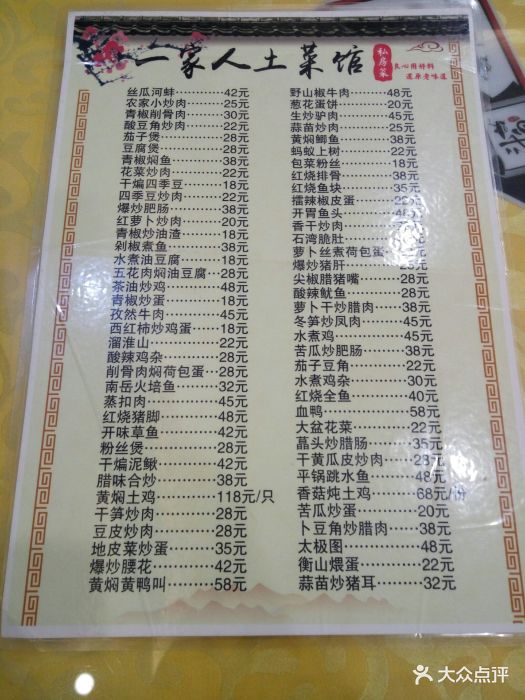 一家人土菜馆
私房菜
良心用好料
还原老味道
丝瓜河蚌………42元
农家小炒肉………25元
青椒削骨肉………30元
酸豆角炒肉………22元
茄子煲………28元
豆腐煲………28元
青椒焖鱼………38元
花菜炒肉………22元
干煸四季豆………18元
四季豆炒肉………22元
爆炒肥肠………38元
红萝卜炒肉………20元
青椒炒油渣………18元
剁椒煮鱼………38元
水煮油豆腐………18元
五花肉焖油豆腐…28元
茶油炒鸡………48元
青椒炒蛋………18元
孜然牛肉………45元
西红柿炒鸡蛋……18元
溜淮山………22元
酸辣鸡杂………28元
削骨肉焖荷包蛋…28元
南岳火培鱼………32元
蒸扣肉………45元
红烧猪脚………48元
开味草鱼………42元
粉丝煲………28元
干煸泥鳅………42元
腊味合炒………38元
黄焖土鸡………118元/只
干笋炒肉………28元
豆皮炒肉………28元
地皮菜炒蛋………35元
爆炒腰花………42元
黄焖黄鸭叫………58元
野山椒牛肉………48元
葱花蛋饼………20元
生炒驴肉………45元
蒜苗炒肉………25元
黄焖鲫鱼………38元
蚂蚁上树………22元
包菜粉丝………18元
红烧排骨………38元
红烧鱼块………35元
擂辣椒皮蛋………22元
开胃鱼头………48元
香干炒肉………元
石湾脆肚………元
萝卜丝煮荷包蛋…22元
爆炒猪肝………元
尖椒腊猪嘴………28元
酸辣鱿鱼………28元
萝卜干炒腊肉……38元
冬笋炒凤肉………45元
水煮鸡………45元
苦瓜炒肥肠………38元
茄子豆角………22元
水煮鸡杂………30元
红烧全鱼………40元
血鸭………58元
大盆花菜………22元
藠头炒腊肠………35元
干黄瓜皮炒肉……28元
平锅跳水鱼………48元
香菇炖土鸡………68元/份
苦瓜炒蛋………20元
卜豆角炒腊肉……38元
太极图………48元
衡山煨蛋………22元
蒜苗炒猪耳………32元
大众点评